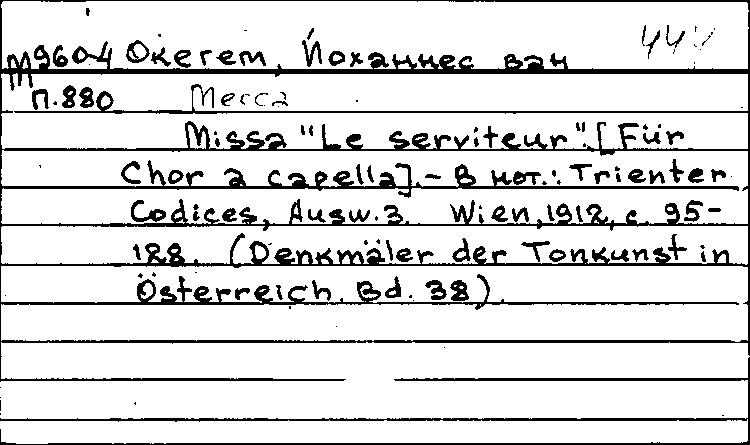 М9604 Окегем, Йоханнес ван
п.880 Месса
Missa "Le serviteur". [Für
Chor a capella]. – В нот.: Trienter
Codices, Ausw. 3. Wien, 1912, с. 95-
128. (Denkmäler der Tonkunst in
Österreich. Bd. 38).